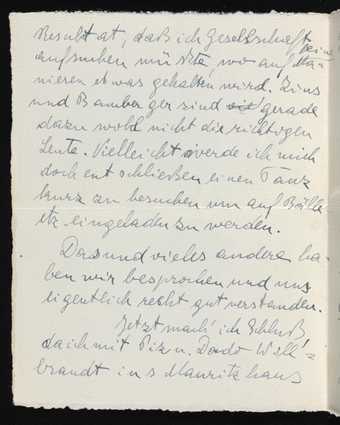 Resultat, daß ich Gesellschaft
aufsuchen müßte wo auf feine Ma-
nieren etwas gehalten wird. Zins
und Bamberger sind gerade
dazu wohl nicht die richtigen
Leute. Vielleicht werde ich mich
doch entschließen einen Tanz
kurz zu besuchen um auf Bälle
etz. eingeladen zu werden.
Das und vieles andere ha-
ben wir besprochen und uns
eigentlich recht gut verstanden.
Jetzt mach' ich Schluß
da ich mit Piz u. Dodo Will-
brandt ins Mauritzhaus